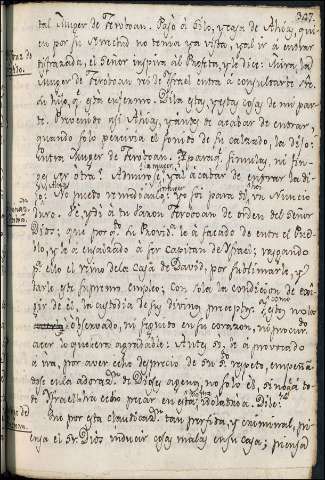 327.
tal Muger de Jeroboan. Pasò à Silo, y casa de Ahias, qui-
en por su vejez no tenia ya vista, y al ir à entrar
disfrazada, el Señor inspira al Profeta, y le dice: Mira, la
Muger de Jeroboan rei de Ysrael entra à consultarte de
su hijo, q.e està enfermo. Dila esto, y esto, cosas de mi par-
te. Prevenido asi Ahias, y antes de acabar de entrar,
quando solo percivia el sonido de su calzado, la dijo:
Entra Muger de Jeroboan. Aparaq.e simulas, ni fin-
ges ser otra? Admirose, y al acabar de entrar la di-
jo: No puedo remediarlo: yo soi para ti, un Nuncio
duro. Ve, y di à tu Varon Jeroboan de orden del Señor
Dios; que por q.to su Provid.a le à sacado de entre el Pue-
blo, y le à ensalzado à ser Capitan de Ysrael; rasgando
p.a ello el reino de la Casa de David, por sublimarle, y
darle este supremo empleo; con sola la condicion de exi-
gir de el, la custodia de sus divinos preceptos; y esto no lo à
observado, ni seguido en su corazon, ni procurado
acer lo que era agradable: Antes si, le à provocado
à ira, por aver echo desprecio de su respeto, empeñan-
dose en la adoraz.n de Dioses agenos, no solo el, si no q.e à to-
do Ysrael à echo pecar en esta idolatria. Dile:
Que por esta claudicaz.n tan perfida, y criminal, pi-
ensa el Sr. Dios inducir cosas malas en su casa; piensa